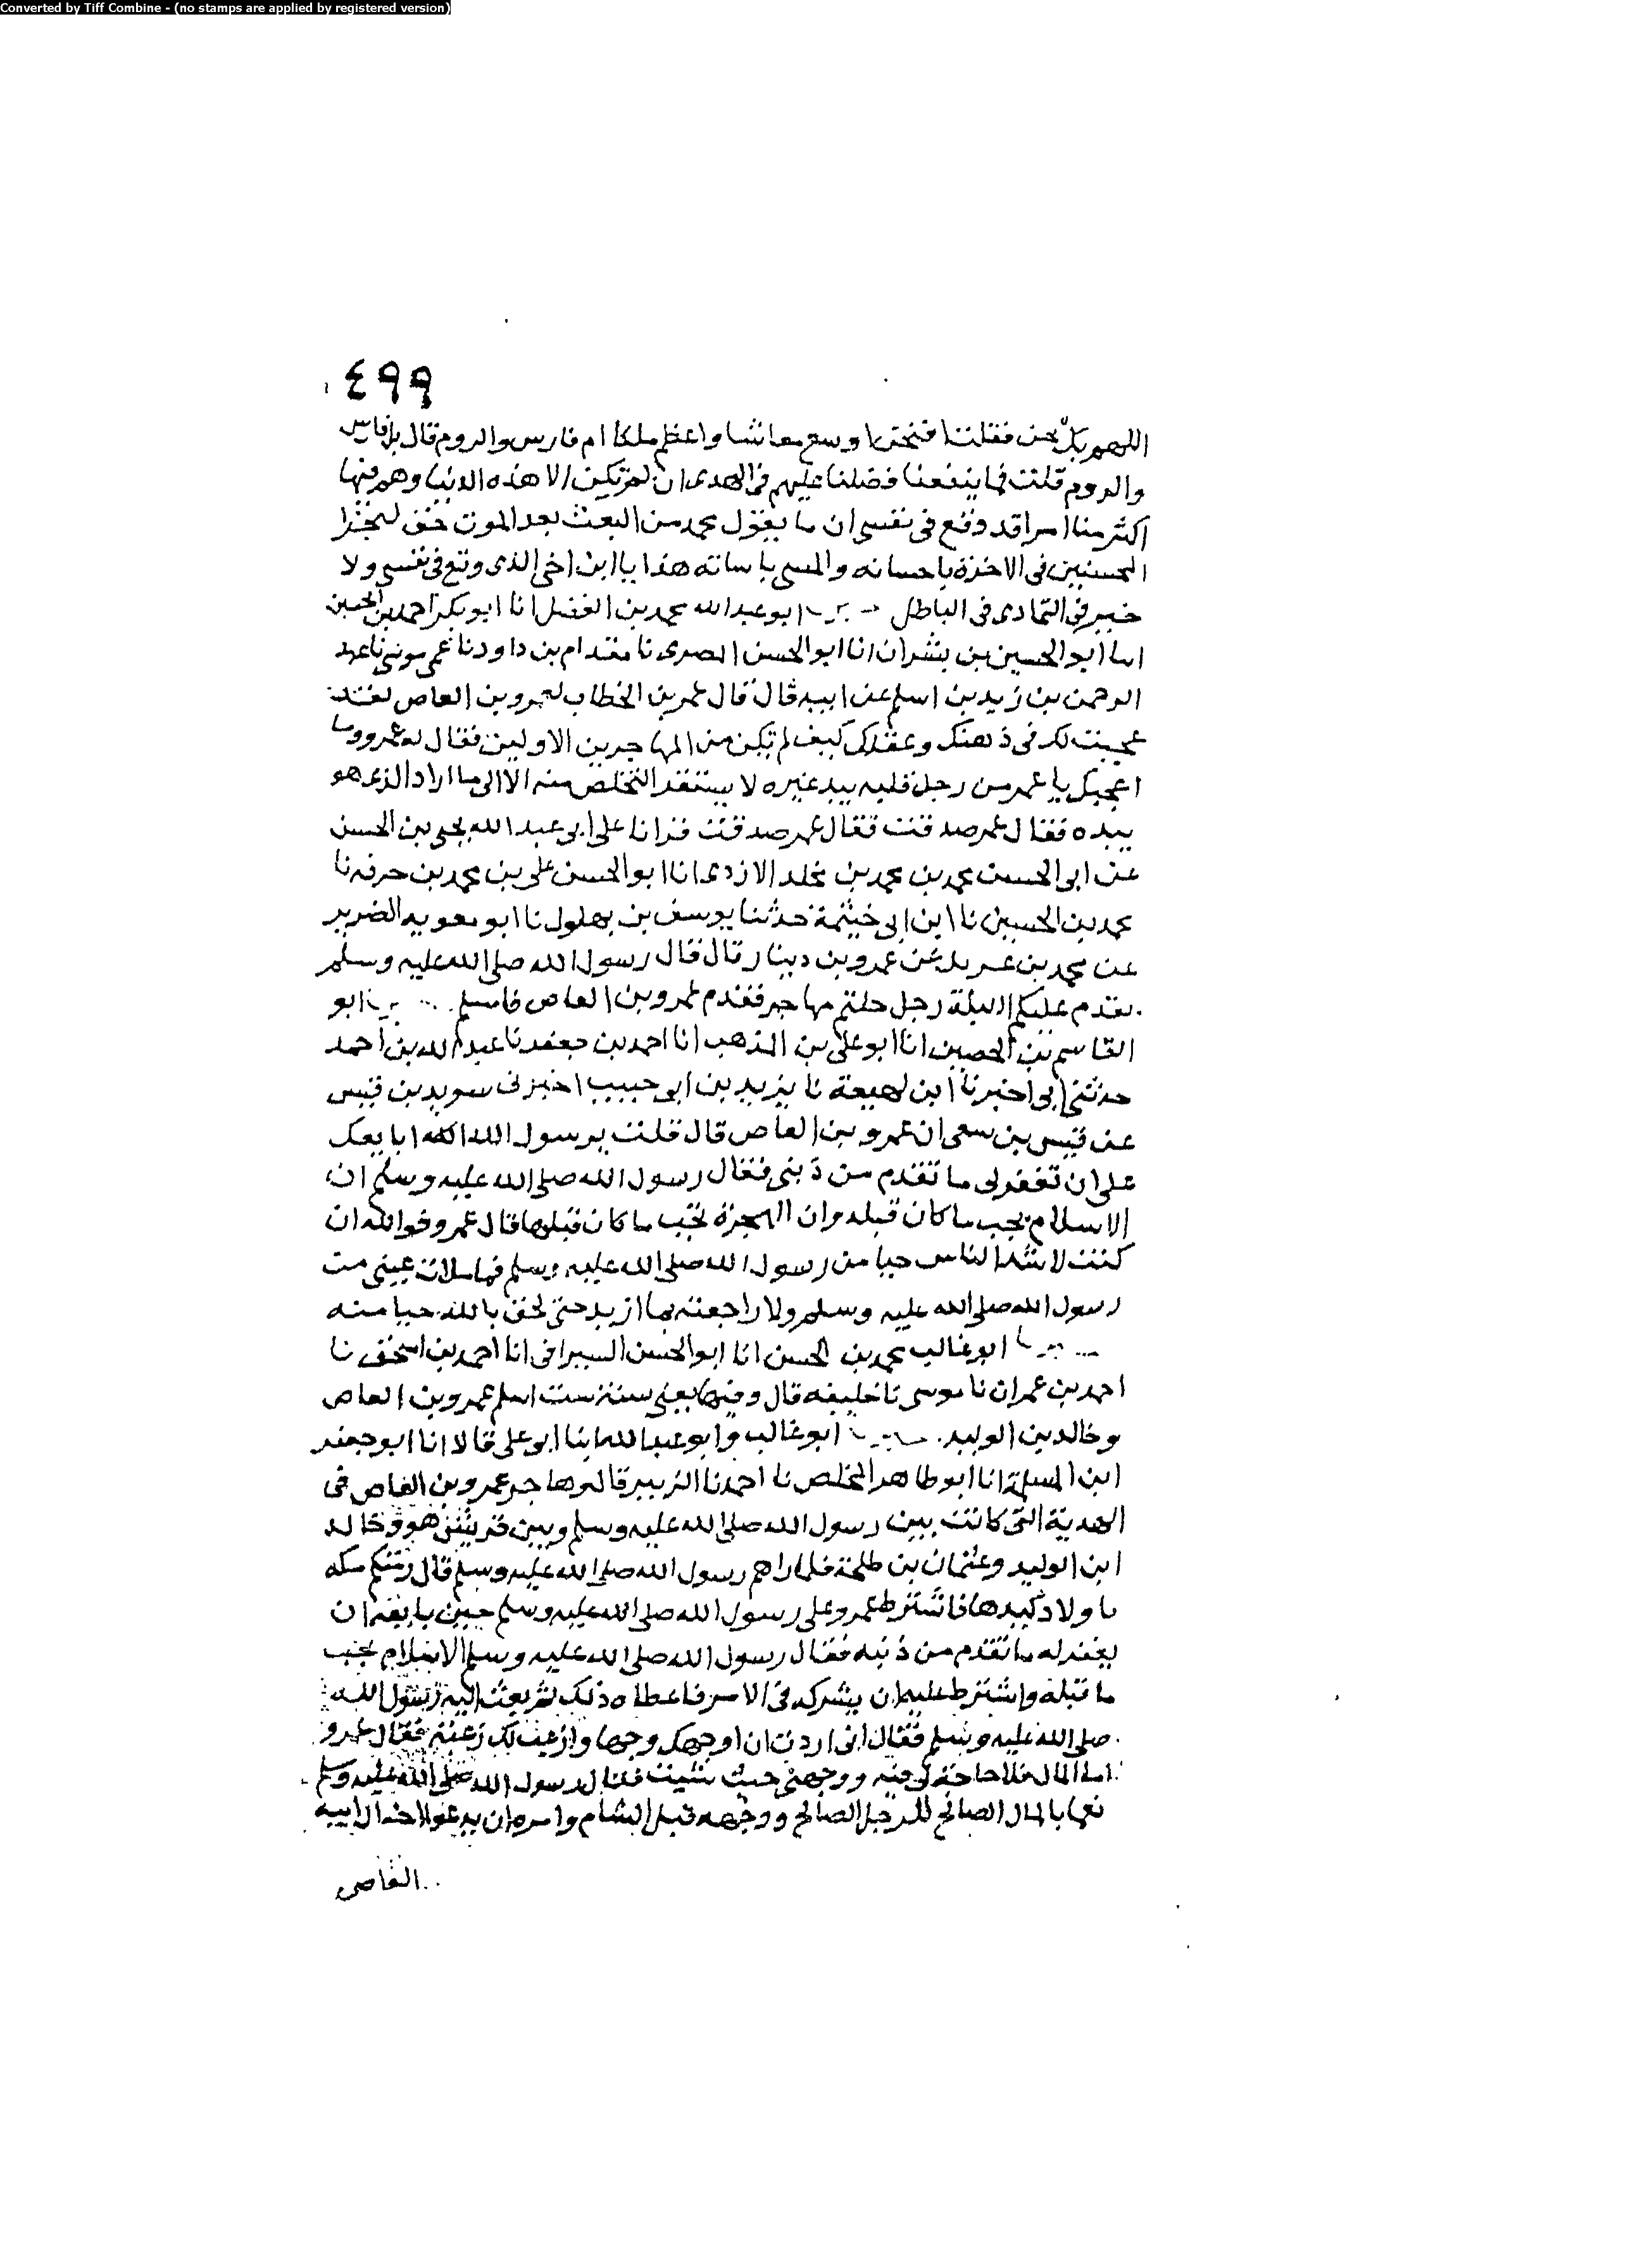 Converted by Tiff Combine - (no stamps are applied by registered version)
٤٩٩
اللهم بل نحن فقلت افنحن اوسع معاشا واعظم ملكا ام فارس والروم قال بل فارس
والروم قلت فما ينفعنا فضلنا عليهم في الهدى ان لم تكن الا هذه الدنيا وهم فيها
اكثر منا امرا قد وقع في نفسي ان ما يقول محمد من البعث بعد الموت حق ليجزا
المحسنين في الاخرة باحسانه والمسي باساته هذا يا ابن اخي الذي وقع في نفسي ولا
خير في التمادي في الباطل ابو عبد الله محمد بن الفضل انا ابو بكر احمد بن الحسين
انا ابو الحسين بن بشران انا ابو الحسن المصري نا مقدام بن داود نا عمي موسى نا عبد
الرحمن بن زيد بن اسلم عن ابيه قال قال عمر بن الخطاب لعمرو بن العاص لقد
عجبت لك في ذهنك وعقلك كيف لم تكن من المهاجرين الاولين فقال له عمرو وما
اعجبك يا عمر من رجل قلبه بيد غيره لا يستنقد التخلص منه الا الى ما اراد الذي هو
بيده فقال عمر صدقت فقال عمر صدقت قرانا على ابي عبد الله يحيى بن الحسن
عن ابي الحسن محمد بن محمد بن مخلد الازدي انا ابو الحسن علي بن محمد بن خزفه نا
محمد بن الحسين نا ابن ابي خيثمة حدثنا يوسف بن بهلول نا ابو معويه الضرير
عن محمد بن عن عمرو بن دينار قال قال رسول الله صلى الله عليه وسلم
يقدم عليكم الليلة رجل حلتم مهاجر فقدم عمرو بن العاص فاسلم ابو
القاسم بن الحصين انا ابو علي بن المذهب انا احمد بن جعفر نا عبد الله بن احمد
حدثني ابي اخبرنا ابن لهيعة نا يزيد بن ابي حبيب اخبرني سويد بن قيس
عن قيس بن سمى ان عمرو بن العاص قال قلت يرسول الله ابايعك
على ان تغفر لي ما تقدم من ذنبي فقال رسول الله صلى الله عليه وسلم ان
الاسلام يجب ما كان قبله وان الهجرة تجب ما كان قبلها قال عمرو فوالله ان
كنت لاشد الناس حيا من رسول الله صلى الله عليه وسلم فما ملات عيني من
رسول الله صلى الله عليه وسلم ولا راجعته بما اريد حتى لحق بالله حيا منه
ابو غالب محمد بن الحسن انا ابو الحسن السيرافي انا احمد بن اسحق نا
احمد بن عمران نا موسى نا خليفه قال وفيها يعني سنة ست اسلم عمرو بن العاص
وخالد بن الوليد ابو غالب وابو عبد الله ابنا ابو علي قالا انا ابو جعفر
ابن المسلمة انا ابو طاهر المخلص نا احمد نا الزبير قال وهاجر عمرو بن العاص في
الهدنة التي كانت بين رسول الله صلى الله عليه وسلم وبين قريش هو وخالد
ابن الوليد وعثمان بن طلحة فلما راهم رسول الله صلى الله عليه وسلم قال رمتكم مكه
باولاد كبدها فاشترط عمرو على رسول الله صلى الله عليه وسلم حين بايعه ان
يغفر له ما تقدم من ذنبه فقال رسول الله صلى الله عليه وسلم الاسلام يجب
ما قبله واشترط عليه ان يشركه في الامر فاعطاه ذلك ثم بعث اليه رسول الله
صلى الله عليه وسلم فقال اني اردت ان اوجهك وجها وازعب لك زعبة فقال عمرو
اما المال فلا حاجة لي فيه ووجهني حيث شيت فقال رسول الله صلى الله عليه وسلم
نعما بالمال الصالح للرجل الصالح ووجهه قبل الشام وامره ان يدعو الاخوال ابيه
العاص